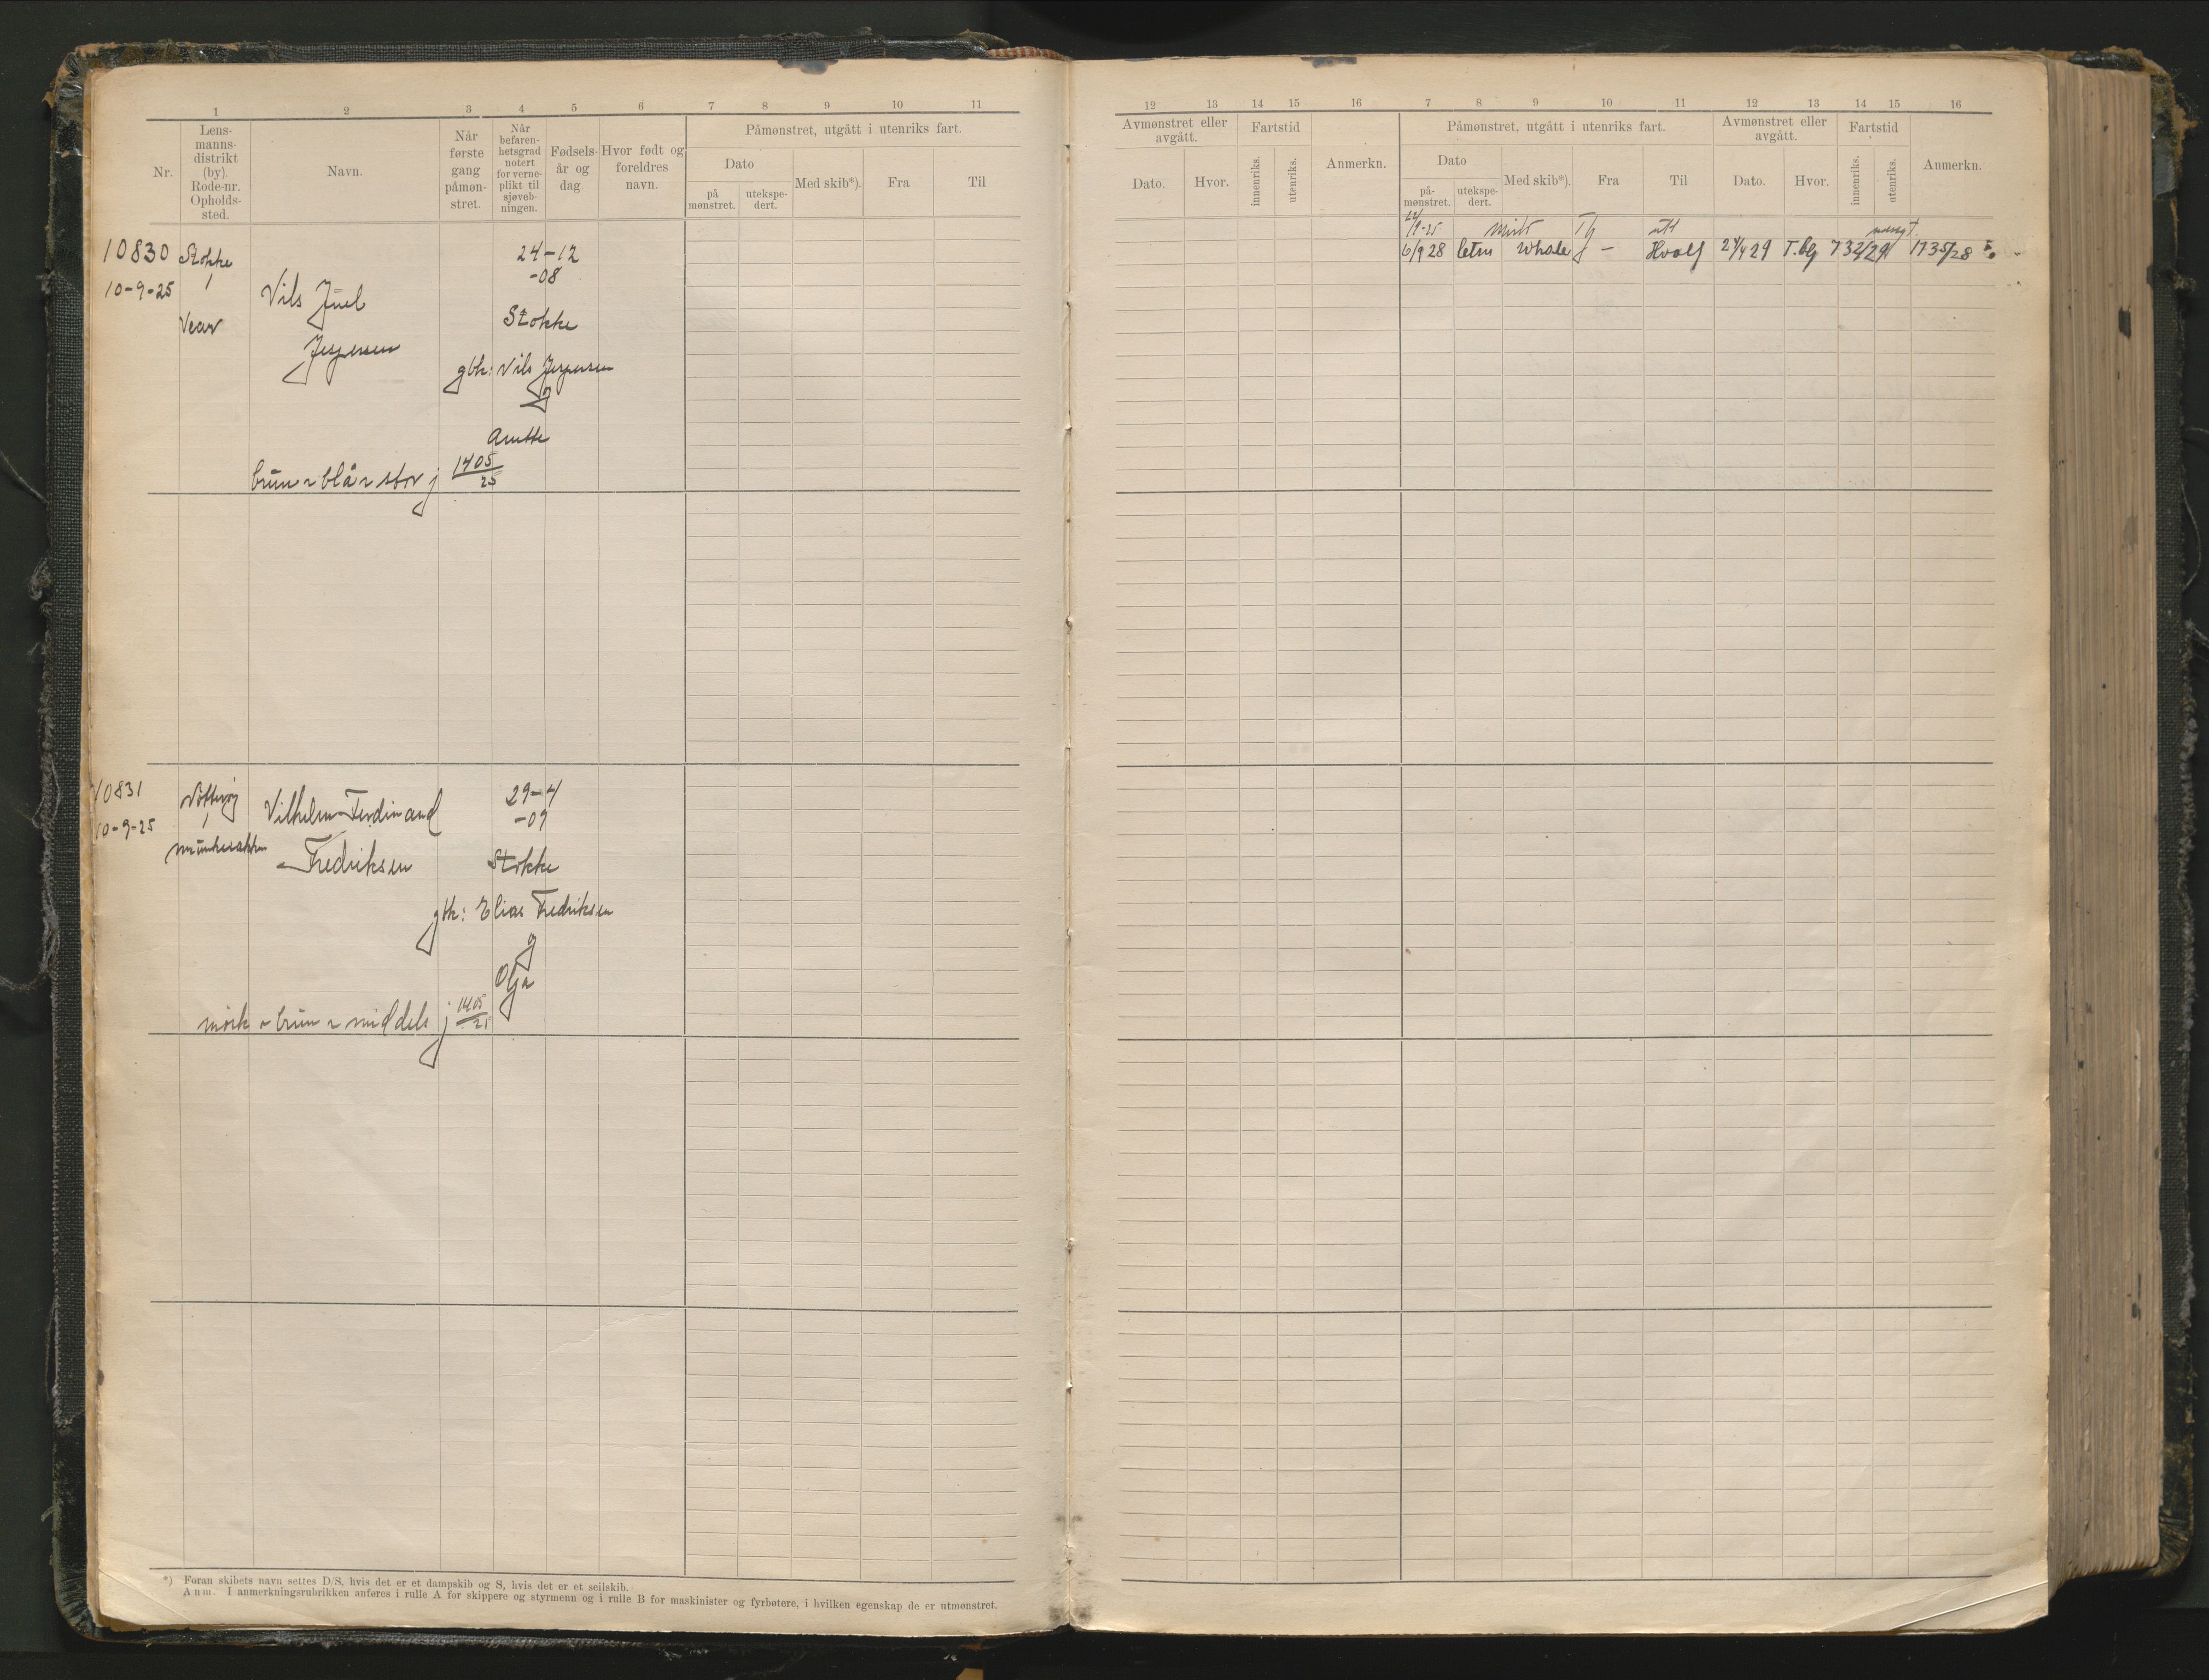 1 2 3 4 5 6 7 8 9 10 11
Nr.
Lens-
manns-
distrikt
(by).
Rode-nr.
Opholds-
sted.
Navn.
Når
første
gang
påmøn-
stret.
Når
befaren-
hetsgrad
notert
for verne-
plikt til
sjøveb-
ningen.
Fødsels-
år og
dag
Hvor født og
foreldres
navn.
Påmønstret, utgått i utenriks fart.
Dato
på
mønstret.
utekspe-
dert.
Med skib*).
Fra
Til
10830 Stokke
10-9-25
Vear
Nils Juel
Jespersen
24-12
-08
Stokke
gbk: Nils Jespersen
g
Anette
brun r blå r stor j 1405/25
10831 Nøtterøy
10-9-25
Vilhelm Ferdinand
Fredriksen
29-4
-09
Stokke
gbk: Elias Fredriksen
g
Olga
mørk r brun r middels j 1405/25
*) Foran skibets navn settes D/S, hvis det er et dampskib og S, hvis det er et seilskib.
Anm. I anmerkningsrubrikken anføres i rulle A for skippere og styrmenn og i rulle B for maskinister og fyrbøtere, i hvilken egenskap de er utmønstret.
12 13 14 15 16 7 8 9 10 11 12 13 14 15 16
Avmønstret eller
avgått.
Dato.
Hvor.
Fartstid
innenriks.
utenriks.
Anmerkn.
Påmønstret, utgått i utenriks fart.
Dato
på-
mønstret.
utekspe-
dert.
Med skib*).
Fra
Til
Avmønstret eller
avgått.
Dato.
Hvor.
Fartstid
innenriks.
utenriks.
Anmerkn.
9-25 Tg
6/9 28 Whale - Hvalf 24/4 29 T.bg 732/29 1735/28